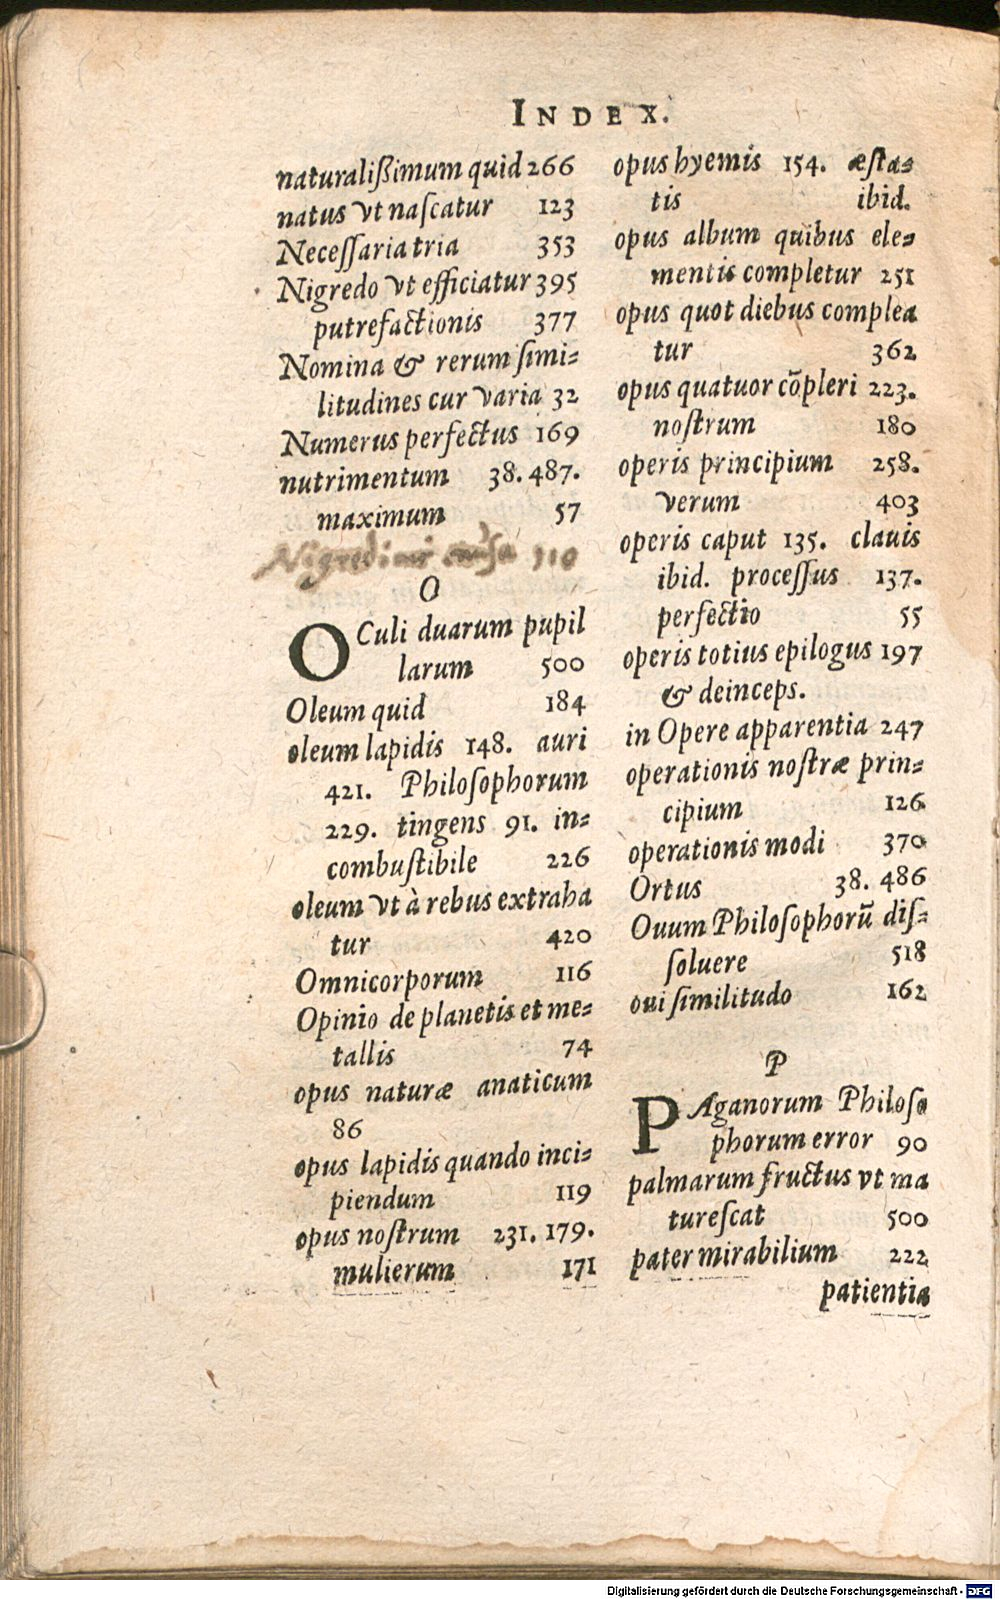 INDEX.
naturalißimum quid 266
natus vt naſcatur 123
Neceſſaria tria 353
Nigredo vt efficiatur 395
putrefactionis 377
Nomina & rerum ſimi-
litudines cur varia 32
Numerus perfectus 169
nutrimentum 38. 487.
maximum 57
Nigredinis cauſa 110
O
OCuli duarum pupil
larum 500
Oleum quid 184
oleum lapidis 148. auri
421. Philoſophorum
229. tingens 91. in-
combuſtibile 226
oleum vt à rebus extraha
tur 420
Omnicorporum 116
Opinio de planetis et me-
tallis 74
opus naturæ anaticum
86
opus lapidis quando inci-
piendum 119
opus noſtrum 231. 179.
mulierum 171
opus hyemis 154. æſta-
tis ibid.
opus album quibus ele-
mentis completur 251
opus quot diebus complea
tur 362
opus quatuor cõpleri 223.
noſtrum 180
operis principium 258.
verum 403
operis caput 135. clauis
ibid. proceſſus 137.
perfectio 55
operis totius epilogus 197
& deinceps.
in Opere apparentia 247
operationis noſtræ prin-
cipium 126
operationis modi 370
Ortus 38. 486
Ouum Philoſophorũ diſ-
ſoluere 518
oui ſimilitudo 162
P
PAganorum Philoſo
phorum error 90
palmarum fructus vt ma
tureſcat 500
pater mirabilium 222
patientia
Digitalisierung gefördert durch die Deutsche Forschungsgemeinschaft - DFG